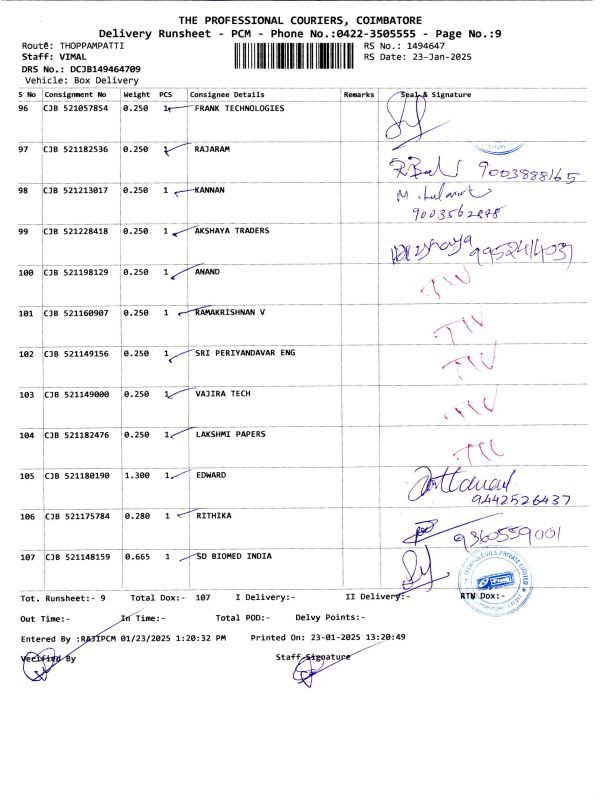 THE PROFESSIONAL COURIERS, COIMBATORE
Delivery Runsheet - PCM - Phone No.:0422-3505555 - Page No.:9
Route: THOPPAMPATTI RS No.: 1494647
Staff: VIMAL RS Date: 23-Jan-2025
DRS No.: DCJB149464709
Vehicle: Box Delivery
S No Consignment No Weight PCS Consignee Details Remarks Seal & Signature
96 CJB 521057854 0.250 1 FRANK TECHNOLOGIES
97 CJB 521182536 0.250 1 RAJARAM
9003888165
98 CJB 521213017 0.250 1 KANNAN
99 CJB 521228418 0.250 1 AKSHAYA TRADERS
100 CJB 521198129 0.250 1 ANAND
101 CJB 521160907 0.250 1 RAMAKRISHNAN V
102 CJB 521149156 0.250 1 SRI PERIYANDAVAR ENG
103 CJB 521149000 0.250 1 VAJIRA TECH
104 CJB 521182476 0.250 1 LAKSHMI PAPERS
105 CJB 521180190 1.300 1 EDWARD
9442526437
106 CJB 521175784 0.280 1 RITHIKA
9360559001
107 CJB 521148159 0.665 1 SD BIOMED INDIA
Tot. Runsheet:- 9 Total Dox:- 107 I Delivery:- II Delivery:- RTN Dox:-
Out Time:- In Time:- Total POD:- Delvy Points:-
Entered By :RAJIPCM 01/23/2025 1:20:32 PM Printed On: 23-01-2025 13:20:49
Verified By Staff Signature